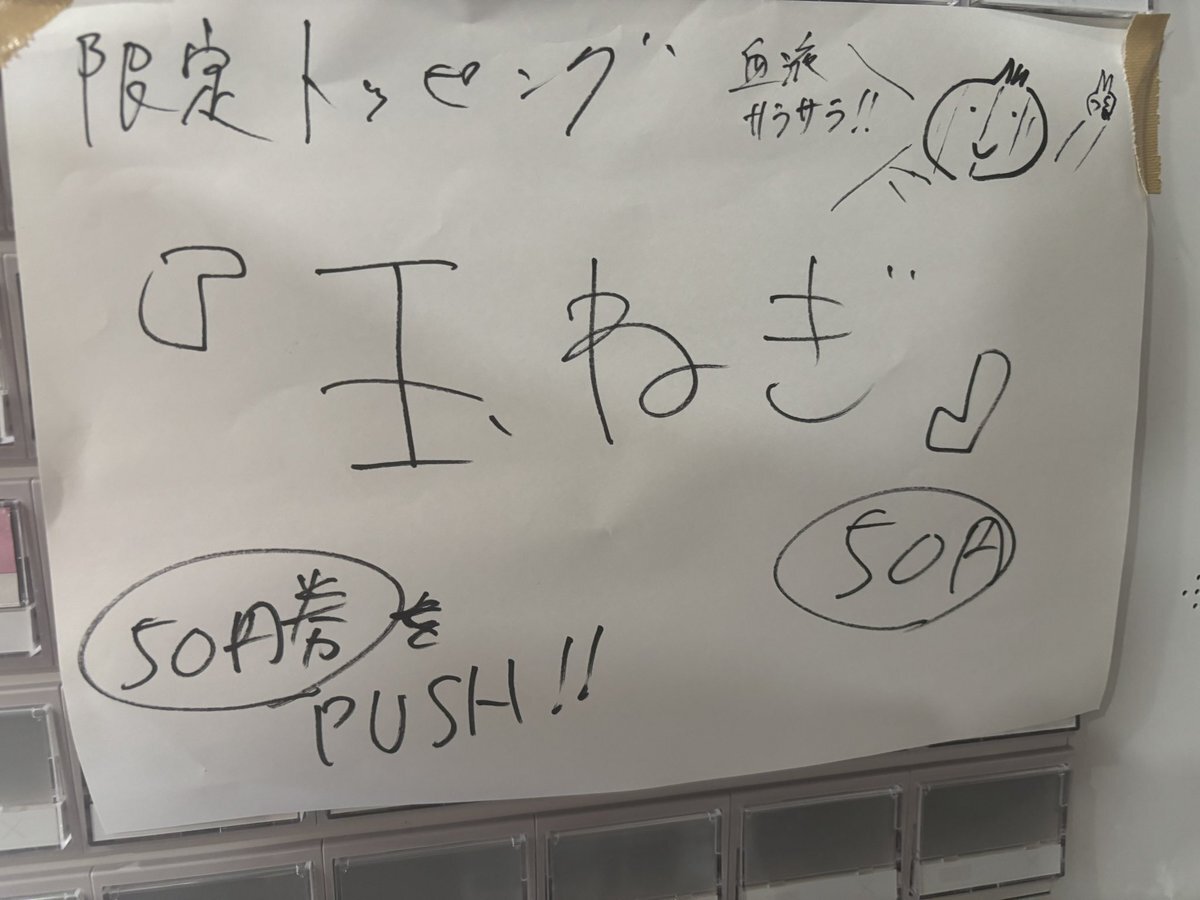 限定トッピング
血液
サラサラ!!
玉ねぎ
50円
50円券を
PUSH!!